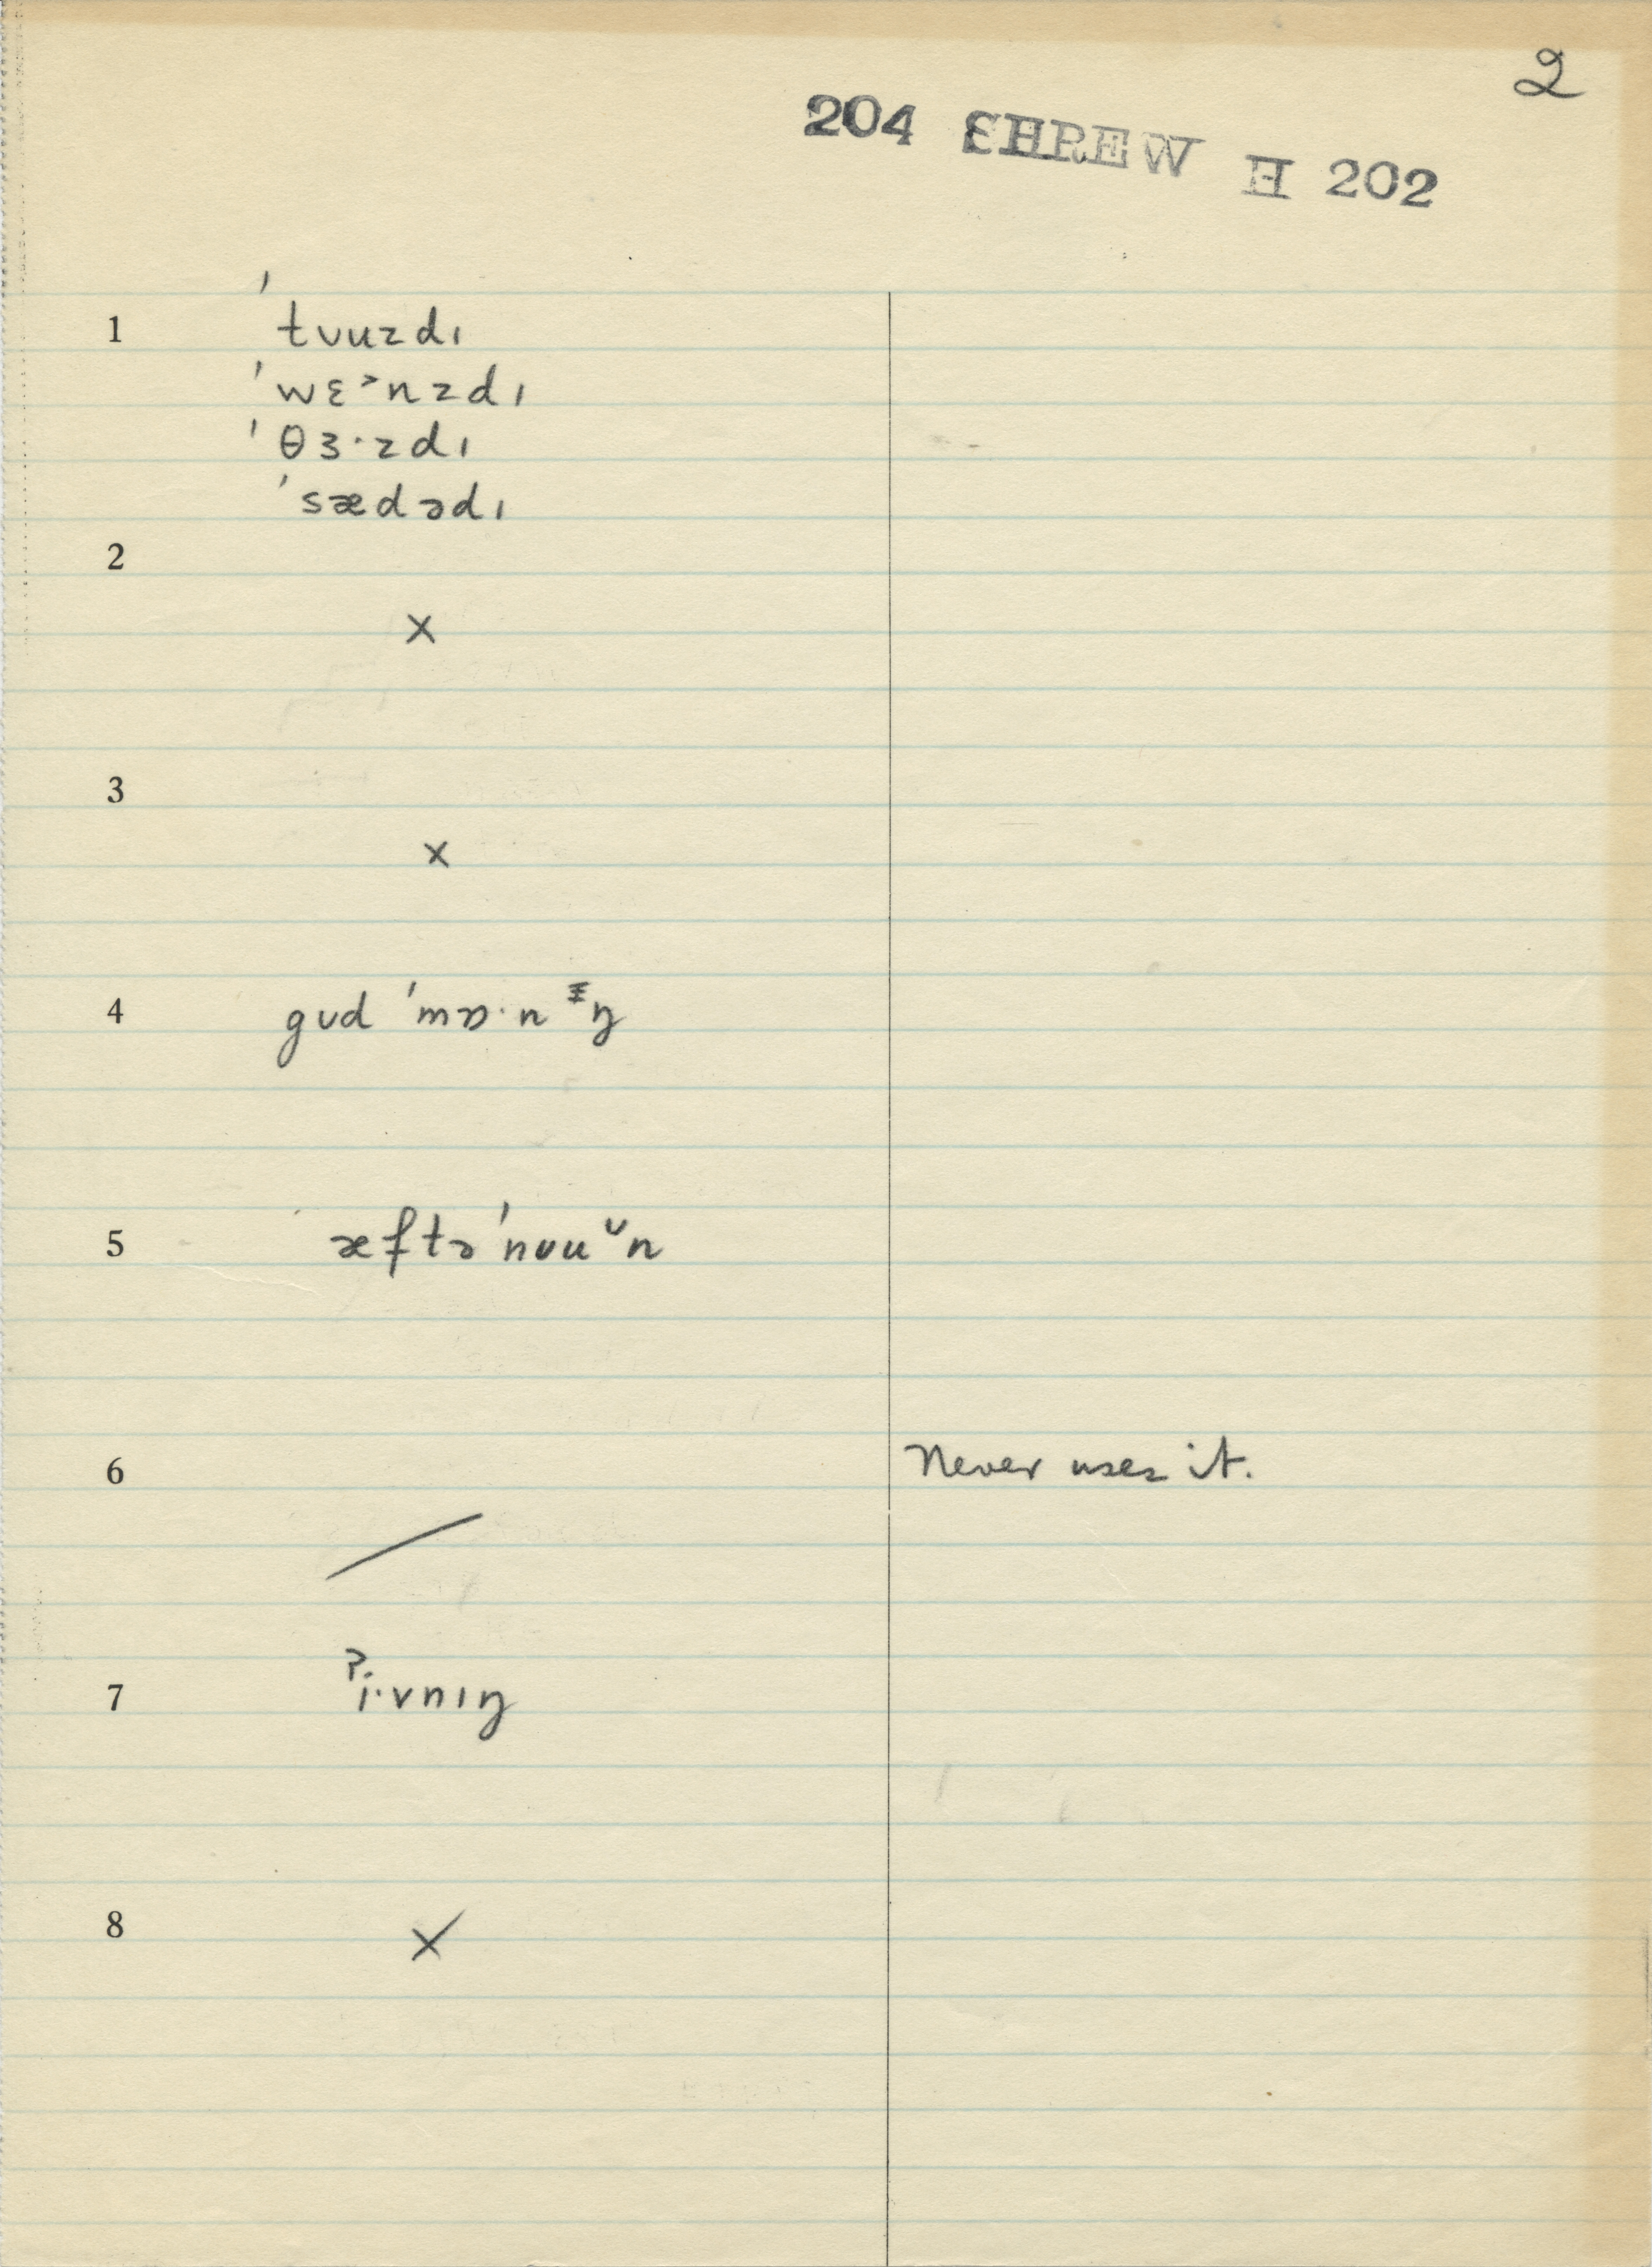 2
204 SHREW H 202
1 ˈtʊuzdɪ
ˈwɛ˃nzdɪ
ˈθɜ·zdɪ
ˈsædədɪ
2
×
3
×
4 gʊd ˈmɒ·nɪŋ
5 æftəˈnʊuᵕn
6 Never uses it.
7 ˀi·vnɪŋ
8 ×